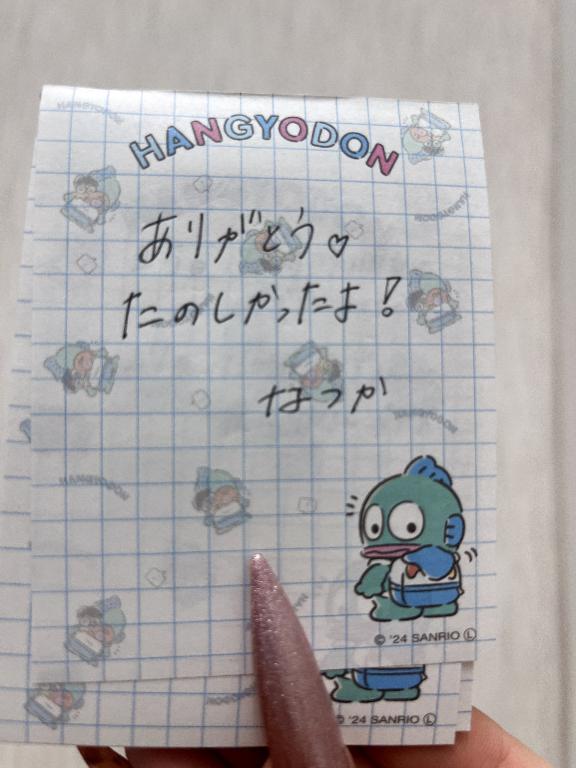 HANGYODON
ありがとう♡
たのしかったよ!
なつか
© '24 SANRIO Ⓛ
© '24 SANRIO Ⓛ